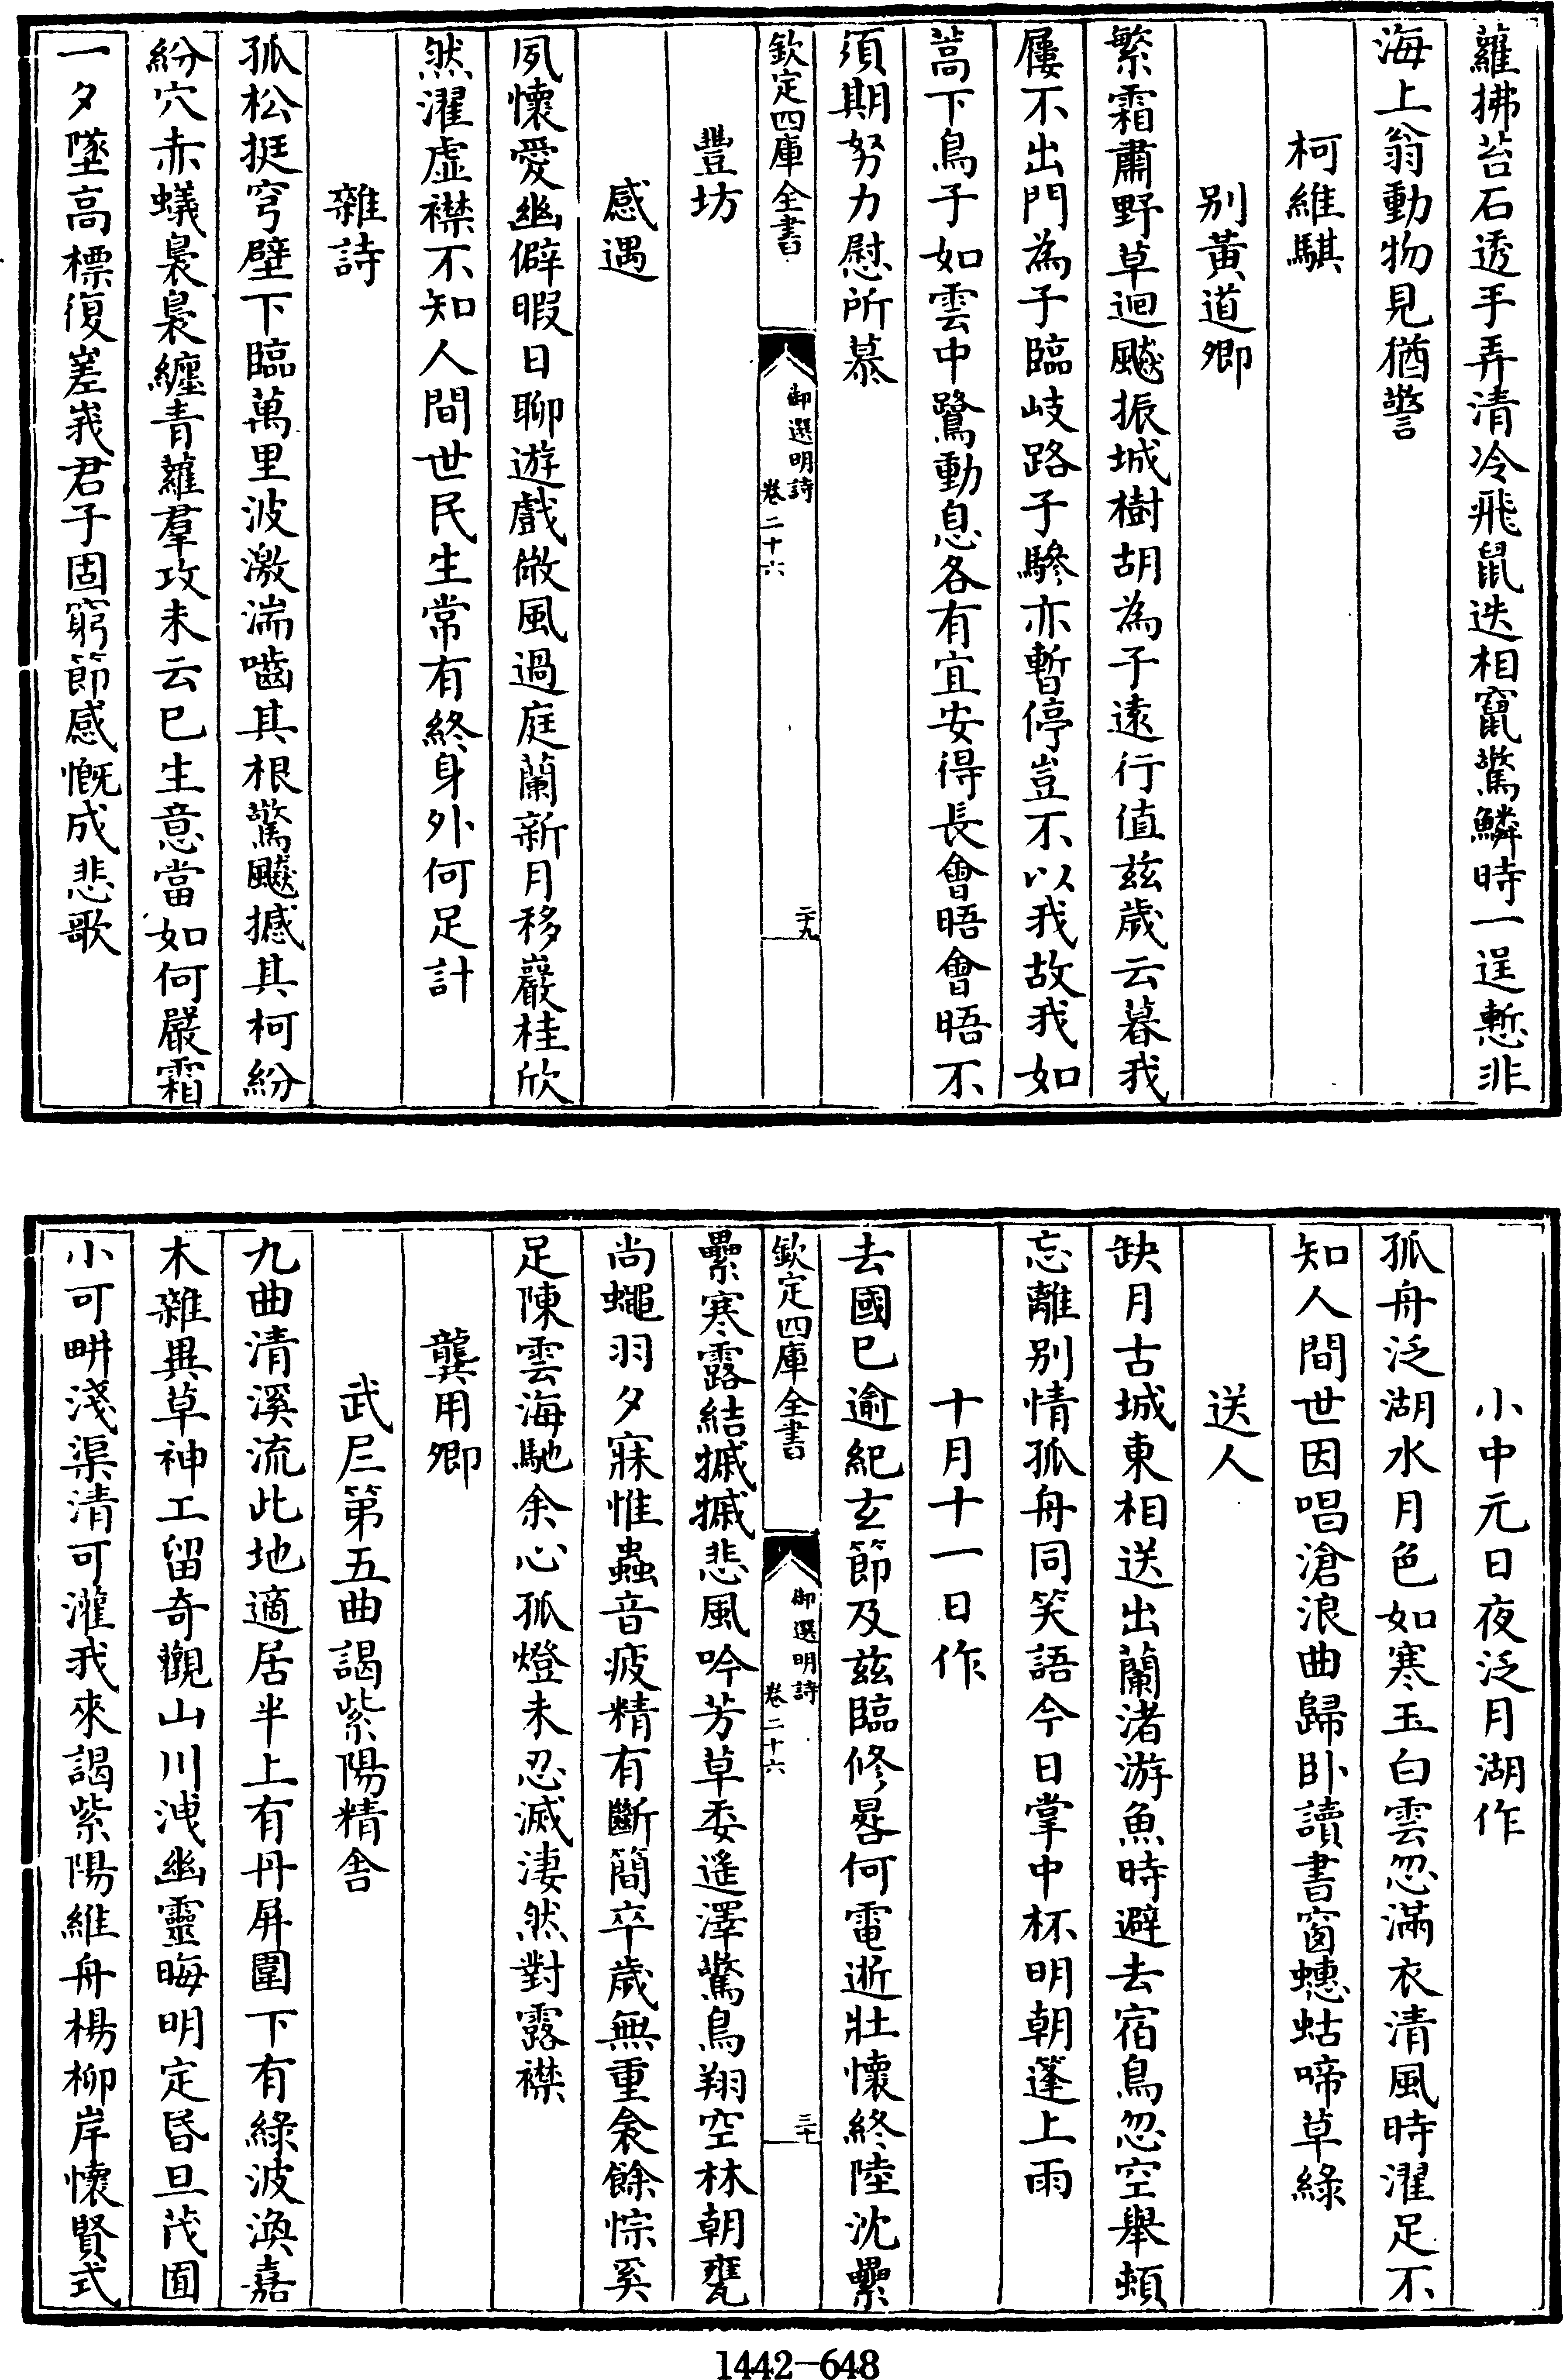 蘿拂苔石透手弄清冷飛鼠迭相竄驚鱗時一逞慙非
海上翁動物見猶警
柯維騏
别黄道卿
繁霜肅野草迴飈振城樹胡為子遠行值兹歲云暮我
屨不出門為子臨岐路子驂亦暫停豈不以我故我如
蒿下鳥子如雲中鷺動息各有宜安得長會晤會晤不
須期努力慰所慕
欽定四庫全書
御選明詩
卷二十六
二十九
豐坊
感遇
夙懷愛幽僻暇日聊遊戲微風過庭蘭新月移巖桂欣
然濯虚襟不知人間世民生常有終身外何足計
雜詩
孤松挺穹壁下臨萬里波激湍嚙其根驚飈撼其柯紛
紛穴赤蟻裊裊纏青蘿羣攻未云已生意當如何嚴霜
一夕墜高標復嵳峩君子固窮節感慨成悲歌
小中元日夜泛月湖作
孤舟泛湖水月色如寒玉白雲忽滿衣清風時濯足不
知人間世因唱滄浪曲歸卧讀書窗蟪蛄啼草綠
送人
缺月古城東相送出蘭渚游魚時避去宿鳥忽空舉頓
忘離别情孤舟同笑語今日掌中杯明朝篷上雨
十月十一日作
去國已逾紀玄節及兹臨修晷何電逝壯懷終陸沈纍
欽定四庫全書
御選明詩
卷二十六
三十
纍寒露結摵摵悲風吟芳草委遥澤驚鳥翔空林朝甕
尚蠅羽夕寐惟蟲音疲精有斷簡卒歲無重衾餘悰奚
足陳雲海馳余心孤燈未忍滅淒然對露襟
龔用卿
武夷第五曲謁紫陽精舍
九曲清溪流此地適居半上有丹屏圍下有綠波渙嘉
木雜異草神工留奇觀山川洩幽靈晦明定昏旦茂囿
小可畊淺渠清可灌我來謁紫陽維舟楊柳岸懷賢式
1442-648